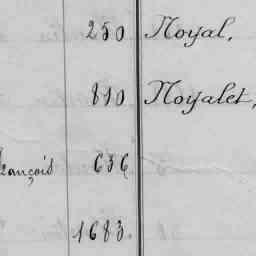 250 Noyal,
810 Noyalet,
François 636
1683.